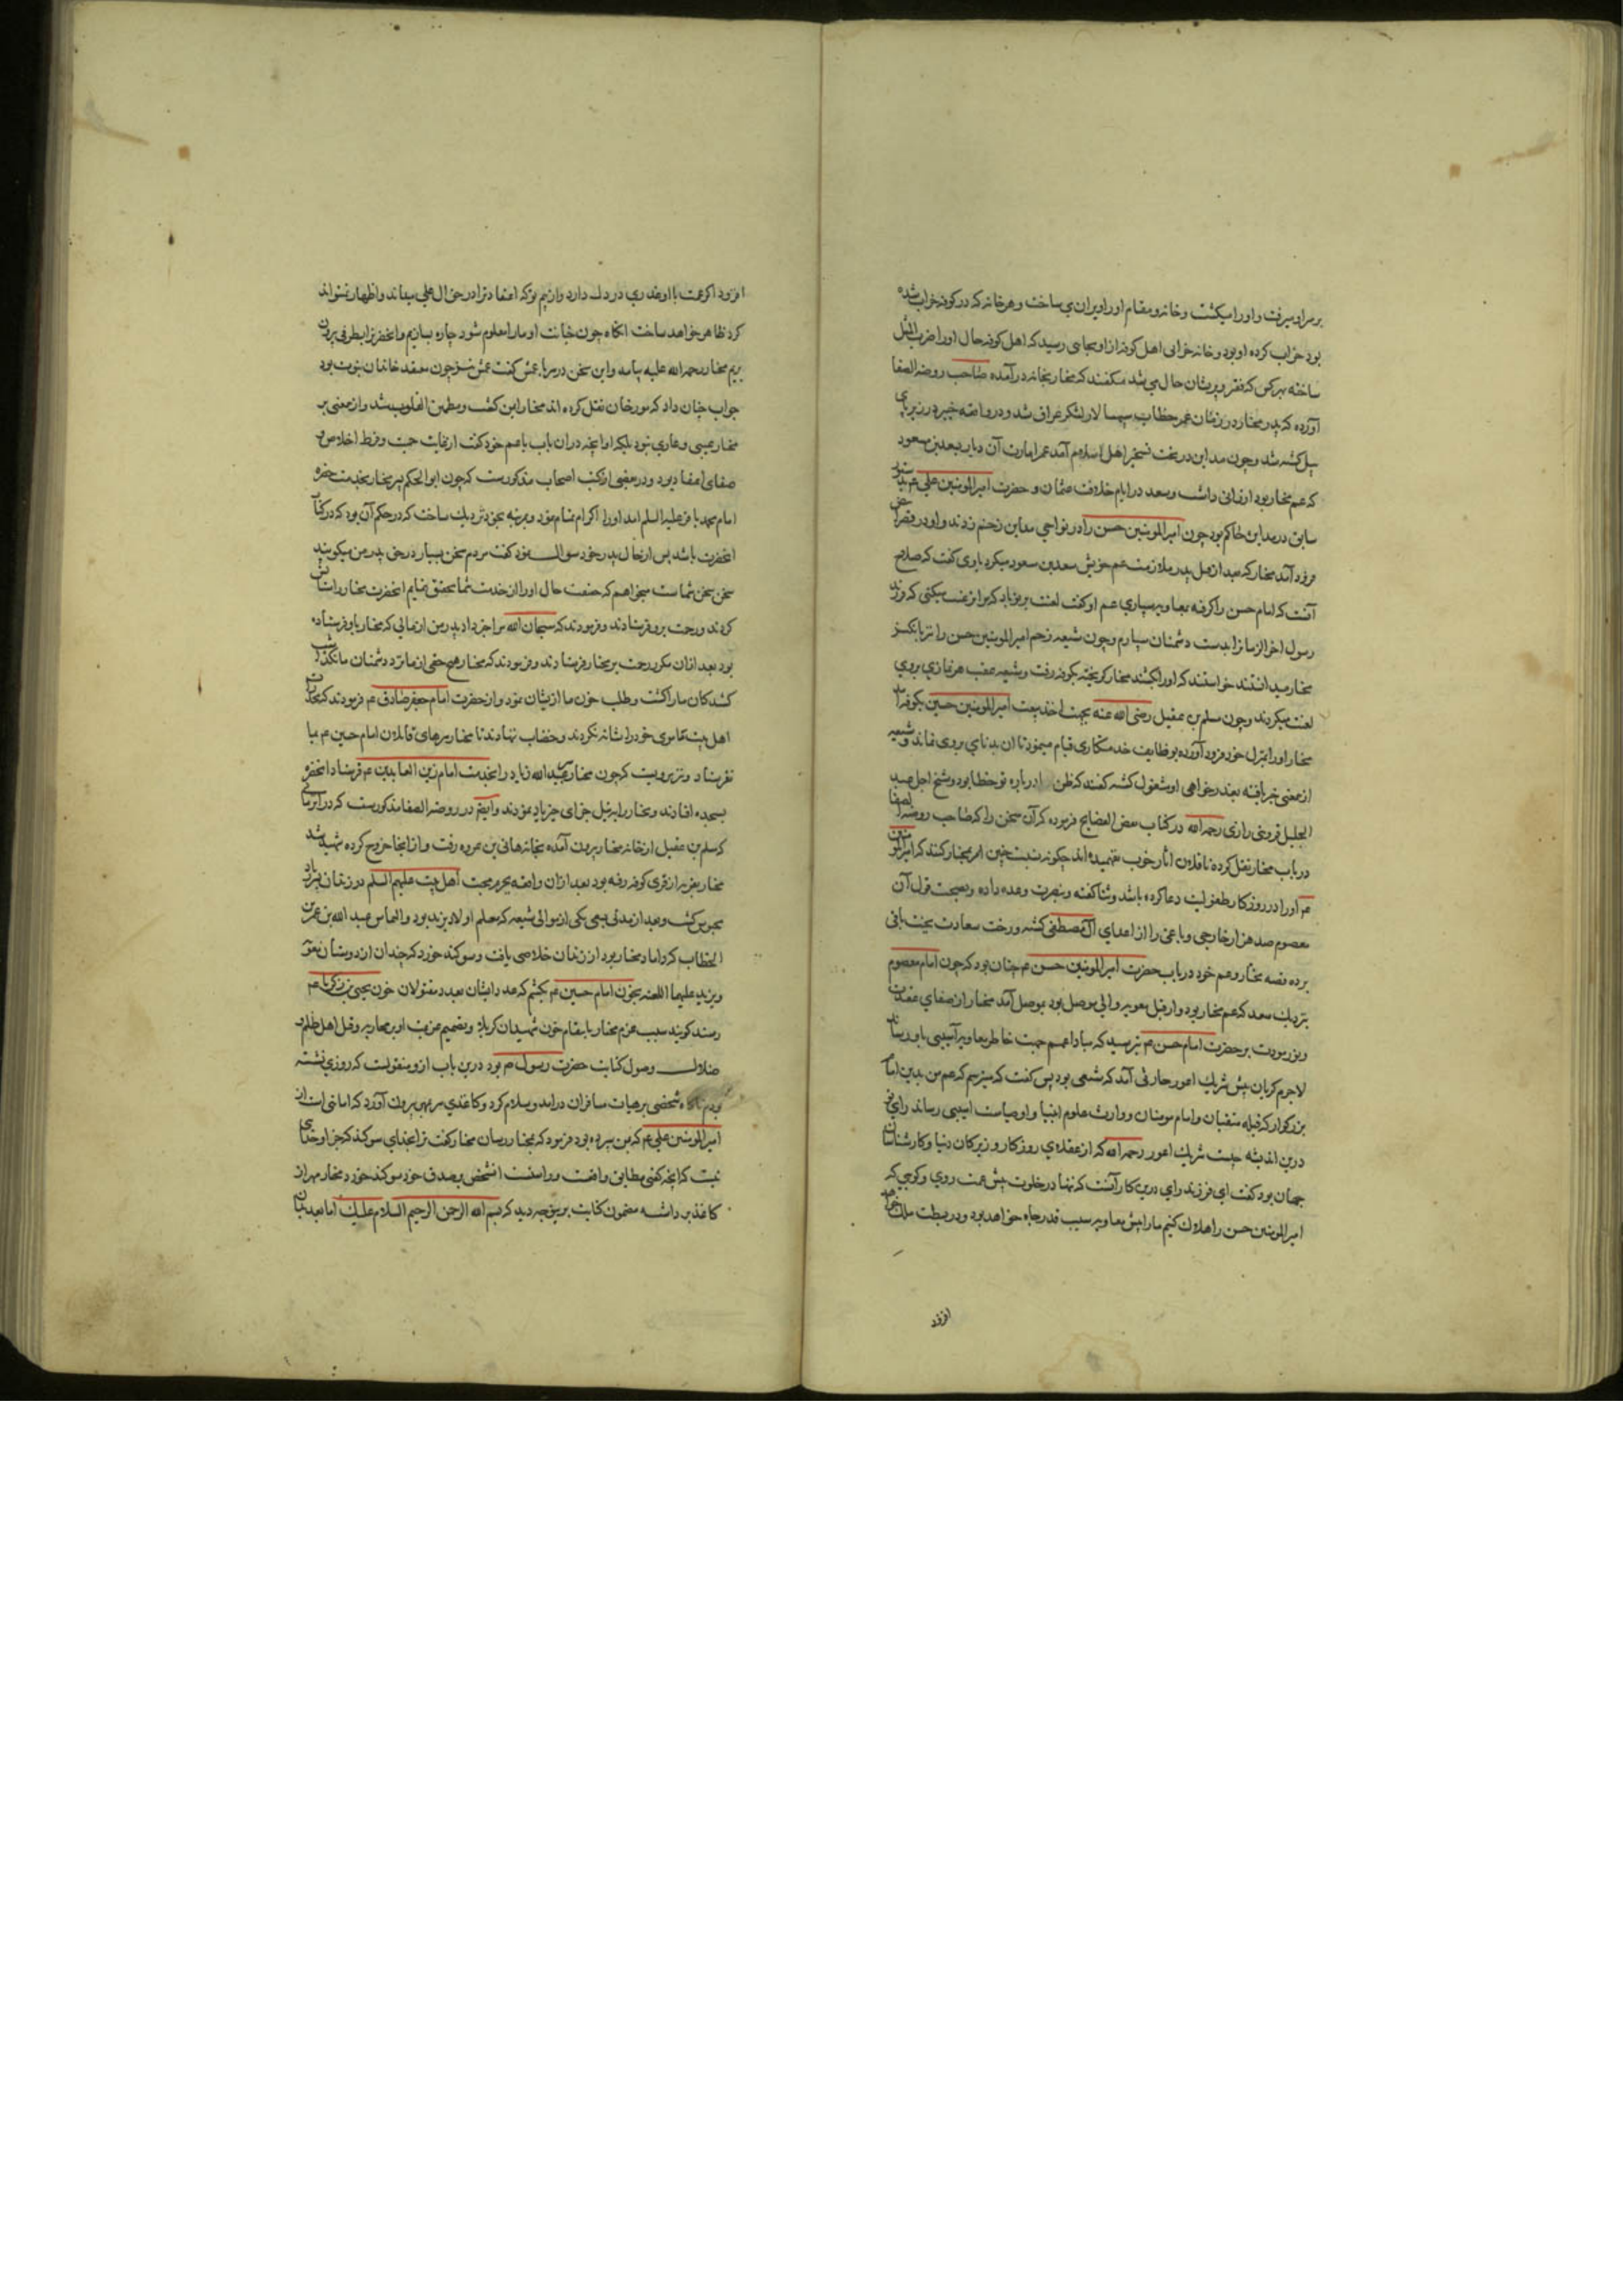 بر سر او میرفت و او را میکشت و خانه و مقام او را ویران می ساخت و هر خانه که در کوفه خراب شده
بود خراب کرده او بود و خانه خرابی اهل کوفه از او بجایی رسید که اهل کوفه حال او را ضرب المثل
ساخته بهر کس که فقر و پریشان حال می شد میگفتند که مختار بخانه درآمده صاحب روضه الصفا
آورده که پدر مختار در زمان عمر خطاب سپهسالار لشکر عراق شد و در واقعه جسر در زیر پای
پیل کشته شد و چون مداین در تحت تسخیر اهل اسلام آمد عمر امارت آن دیار بسعد بن مسعود
که عم مختار بود ارزانی داشت و سعد در ایام خلافت عثمان و حضرت امیرالمومنین علی ع بدستور
سابق در مداین حاکم بود چون امیرالمومنین حسن را در نواحی مداین زخم زدند و او در قصر ابیض
فرود آمد مختار که بعد از قتل پدر ملازمت عم خویش سعد بن مسعود میکرد باوی گفت که صلاح
آنست که امام حسن را گرفته بمعاویه سپاری عم او گفت لعنت بر تو باد که مرا ترغیب میکنی که فرزند
رسول اخر الزمانرا بدست دشمنان سپارم و چون شیعه زخم امیرالمومنین حسن را
مختار میدانستند خواستند که او را بکشند مختار گریخته بکوفه رفت و شیعه عقب هر نمازی بر وی
لعنت میکردند و چون مسلم بن عقیل رضی الله عنه بجهت اخذ بیعت امیرالمومنین حسین بکوفه آمد
مختار او را بمنزل خود فرود آورده بوظایف خدمتکاری قیام میمود تا آن بدنامی بر وی نماند و شیعه
ازمعنی خبر یافته بعذرخواهی او مشغول گشته گفتند که ظن ما درباره تو خطا بود و شیخ اجل عبد
الجلیل قزوینی رازی رحمه الله در کتاب بعض الفضایح فرموده که آن سخن را که صاحب روضه الصفا
در باب مختار نقل کرده ناقلان آثار خوب نفهمیده اند چگونه نسبت چنین امر بمختار کنند که امیرالمومنین
ع او را در روزکار طفولیت دعا کرده باشد و ثنا گفته و بنصرت وعده داده و بصحت قول آن
معصوم صد هزار خارجی و باغی را از اعدای آل مصطفی کشته و رخت سعادت بجنت باقی
برده قصه مختار و عم خود در باب حضرت امیرالمومنین حسن ع چنان بود که چون امام معصوم
بنزدیک سعد که عم مختار بود و از قبل معویه والی موصل بود بموصل آمد مختار از صفای عقیدت
و بر حضرت امام حسن ع بترسید که مبادا عمم جهت خاطر معاویه آسیبی باو رساند
لاجرم گریان پیش شریک اعور حارثی آمد که شیعی بود پس گفت که میترسم که عم من بدین امام
بزرکوار که قبله متقیان و امام مومنان و وارث علوم انبیا و اوصیاست آسیبی رساند رای تو
درین اندیشه چیست شریک اعور رحمه الله که از عقلای روزکار و زیرکان دنیا و کارشناسان
جهان بود گفت ای فرزند رای درین کار آنست که تنها در خلوت پیش عمت روی و گویی که
امیرالمومنین حسن را هلاک کنیم ما را پیش معاویه سبب قدر و جاه خواهد بود و در بسطت ملک خواهد
افزود
افزود اگر عمت با او غدری در دل دارد و از بیم توکه اعتقاد ترا در حق آل علی میداند و اظهار نتواند
کرد ظاهر خواهد ساخت انگاه چون خیانت او ما را معلوم شود چاره بسازیم و آنحضرترا بطرفی بیرون
بریم مختار رحمه الله علیه بیامد و این سخن در سر با عمش گفت عمش نیز چون معتقد خاندان نبوت بود
جواب چنان داد که مورخان نقل کرده اند مختار ایمن گشت و مطمئن القلوب شد و ازمعنی بر
مختار عیبی و عاری نبود بلکه او آنچه در آن باب با عم خود گفت از غایت محبت و فرط اخلاص و
صفای اعتقاد بود و در بعضی از کتب اصحاب مذکورست که چون ابوالحکم پسر مختار بخدمت حضرت
امام محمد باقر علیه السلم آمد او را اکرام تمام نمود و بمرتبه بخود نزدیک ساخت که در حکم آن بود که در کنار
انحضرت باشد پس از حال پدر خود سوال نمود گفت مردم سخن بسیار در حق پدر من میگویند
سخن سخن شماست میخواهم که حقیقت حال او را از خدمت شما تحقیق نمایم انحضرت مختار را ستایش
کردند و رحمت برو فرستادند و فرمودند که سبحان الله مرا خبر داد پدر من از مالی که مختار باو فرستاده
بود بعد از آن مکرر رحمت بر مختار فرستادند و فرمودند که مختار هیچ حقی از ما نزد دشمنان ما نگذاشت
کشندکان ما را کشت و طلب خون ما ازیشان نمود و از حضرت امام جعفر صادق ع فرمودند که مخدرات
اهل بیت ما موی خود را شانه نکردند و خضاب ننهادند تا مختار سرهای قاتلان امام حسین ع بما
نفرستاد و نیز مرویست که چون مختار سر عبیدالله زیاد را بخدمت امام زین العابدین ع فرستاد انحضرت
بسجده افتادند و مختار را بر نیل جزای خیر یاد نمودند و ایضا در روضه الصفا مذکورست که در ایامی
که مسلم بن عقیل از خانه مختار بیرون آمده بخانه هانی بن عروه رفت و از آنجا خروج کرده شهید شد
مختار بقریه از قری کوفه رفته بود بعد از آن واقعه بجرم محبت اهل بیت علیهم السلم در زندان ابن زیاد
محبوس گشت و بعد از مدتی بسعی یکی از موالی شیعه که معلم اولاد یزید بود و التماس عبدالله بن عمر بن
الخطاب که داماد مختار بود از زندان خلاصی یافت و سوکند خورد که چندان از دوستان معویه
و یزید علیهما اللعنه بخون امام حسین ع بکشم که عدد ایشان بعدد مقتولان خون یحیی بن زکریا ع
رسد گویند سبب عزم مختار بانتقام خون شهیدان کربلا و تصمیم عزیمت او بمحاربه و قتل اهل ظلم و
ضلال وصول کتابت حضرت رسول ص بود درین باب ازو منقولست که روزی نشسته
بودم ناگاه شخصی بر هیات مسافران درآمد و سلام کرد و کاغذی سر بمهر بیرون آورد که امانتی است از
امیرالمومنین علی ع که بمن سپرده بود فرمود که بمختار رسان مختار گفت ترا بخدای سوکند که جز او خدای
نیست که آنچه گفتی مطابق واقعست و راستست انشخص بصدق خود سوکند خورد مختار مهر از
کاغذ برداشته مضمون کتابت برینوجه دید که بسم الله الرحمن الرحیم السلام علیک اما بعد بدان